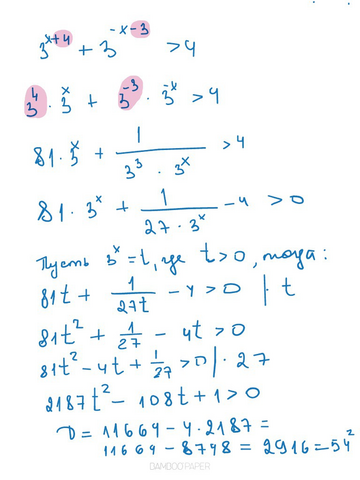 3^{x+4} + 3^{-x-3} > 4
3^4 · 3^x + 3^{-3} · 3^{-x} > 4
81 · 3^x + 1/(3^3 · 3^x) > 4
81 · 3^x + 1/(27 · 3^x) - 4 > 0
Пусть 3^x = t, где t > 0, тогда:
81t + 1/(27t) - 4 > 0 | · t
81t^2 + 1/27 - 4t > 0
81t^2 - 4t + 1/27 > 0 | · 27
2187t^2 - 108t + 1 > 0
D = 11664 - 4 · 2187 =
11664 - 8748 = 2916 = 54^2
BAMBOO PAPER